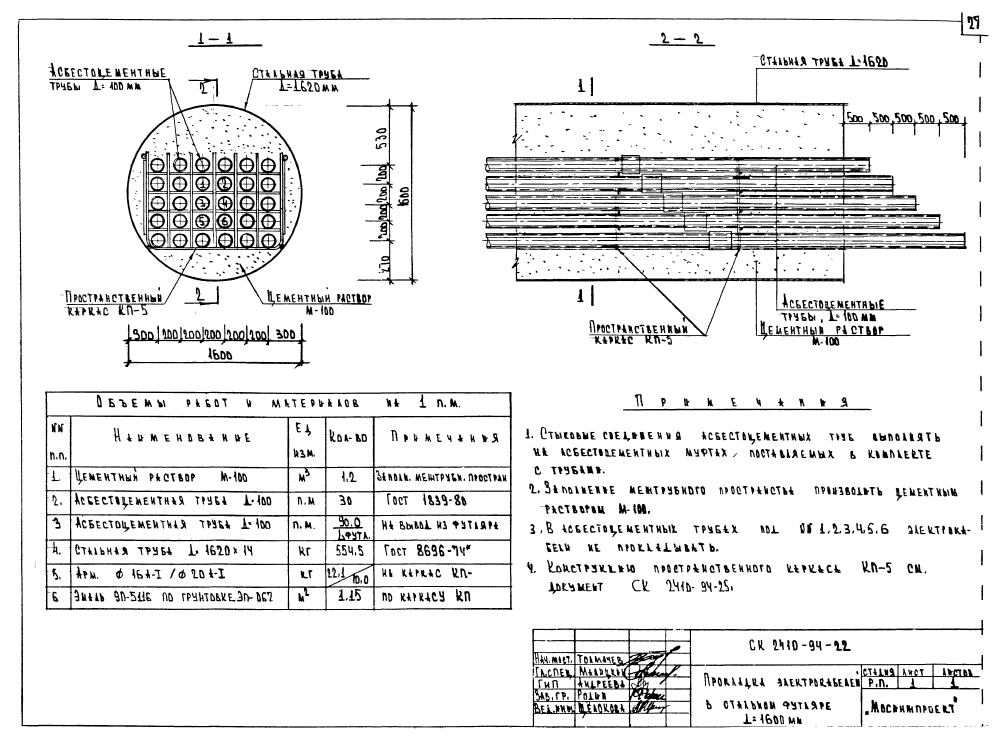 29
1–1
2–2
Асбестоцементные
трубы Д=100 мм
Стальная труба
Д=1620 мм
2
1 2
3 4
5 6
530
200
200
200
200
270
1600
Пространственный
каркас КП-5
2
Цементный раствор
М-100
300 200 200 200 200 200 300
1600
Стальная труба Д=1620
1
500 500 500 500 500
1
Пространственный
каркас КП-5
Асбестоцементные
трубы, Д=100 мм
Цементный раствор
М-100
Объемы работ и материалов на 1 п.м.
NN п.п. Наименование Ед изм. Кол-во Примечания
1. Цементный раствор М-100 м³ 1.2 Заполн. межтрубн. простран
2. Асбестоцементная труба Д-100 п.м 30 Гост 1839-80
3 Асбестоцементная труба Д-100 п.м. 90.0 / Lфута. на вывод из футляра
4. Стальная труба Д. 1620х14 кг 554,5 Гост 8696-74*
5. Арм. ф 16А-I / ф 20А-I кг 22,1 / 10.0 на каркас КП-
6 Эмаль ЭП-5116 по грунтовке ЭП-057 м² 1.15 по каркасу КП
Примечания
1. Стыковые соединения асбестоцементных труб выполнять
на асбестоцементных муфтах, поставляемых в комплекте
с трубами.
2. Заполнение межтрубного пространства производить цементным
раствором М-100.
3. В асбестоцементных трубах под NN 1,2,3,4,5,6 электрока-
бели не прокладывать.
4. Конструкцию пространственного каркаса КП-5 см.
документ СК 2410-94-25.
СК 2410-94-22
Нач. маст. Толмачев
Гл.спец. Малицкий
ГИП Андреева
Зав. гр. Родин
Вед. инж. Щелокова
Прокладка электрокабелей
в стальном футляре
Д=1600 мм
стадия лист листов
Р.П. 1 1
„Мосинжпроект"